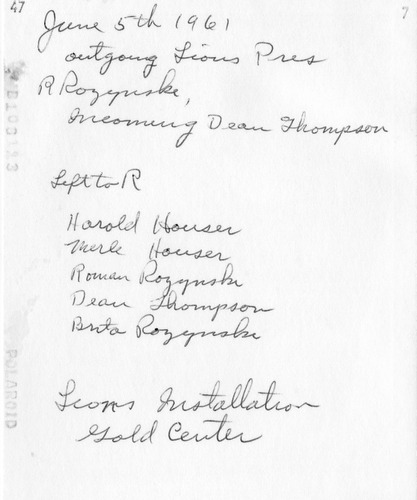 47
7
June 5th 1961
outgoing Lions Pres
R Rozynske,
Incoming Dean Thompson
Left to R
Harold Houser
Merle Houser
Roman Rozynski
Dean Thompson
Brita Rozynski
Lions Installation
Gold Center
POLAROID